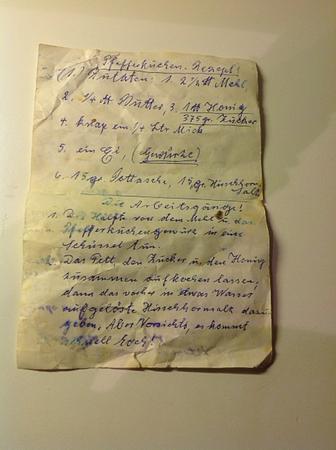 Pfefferkuchen-Rezept!
(1.) Zutaten: 1. 2½ ℔ Mehl,
2. ¼ ℔ Butter, 3. 1 ℔ Honig
375 gr. Zucker
4. knap ein ¼ Ltr Milch
5. ein Ei, (Gewürze)
6. 15 gr. Pottasche, 15 gr. Hirschhorn
Salz
Die Arbeitsgänge!
1. Die Hälfte von dem Mehl u. das
Pfefferkuchengewürz in eine
Schüssel tun.
2. Das Fett, den Zucker u. den Honig
zusammen aufkochen lassen,
dann das vorher in etwas Wasser
aufgelöste Hirschhornsalz dazu
geben, Aber Vorsicht, es kommt
schnell hoch!